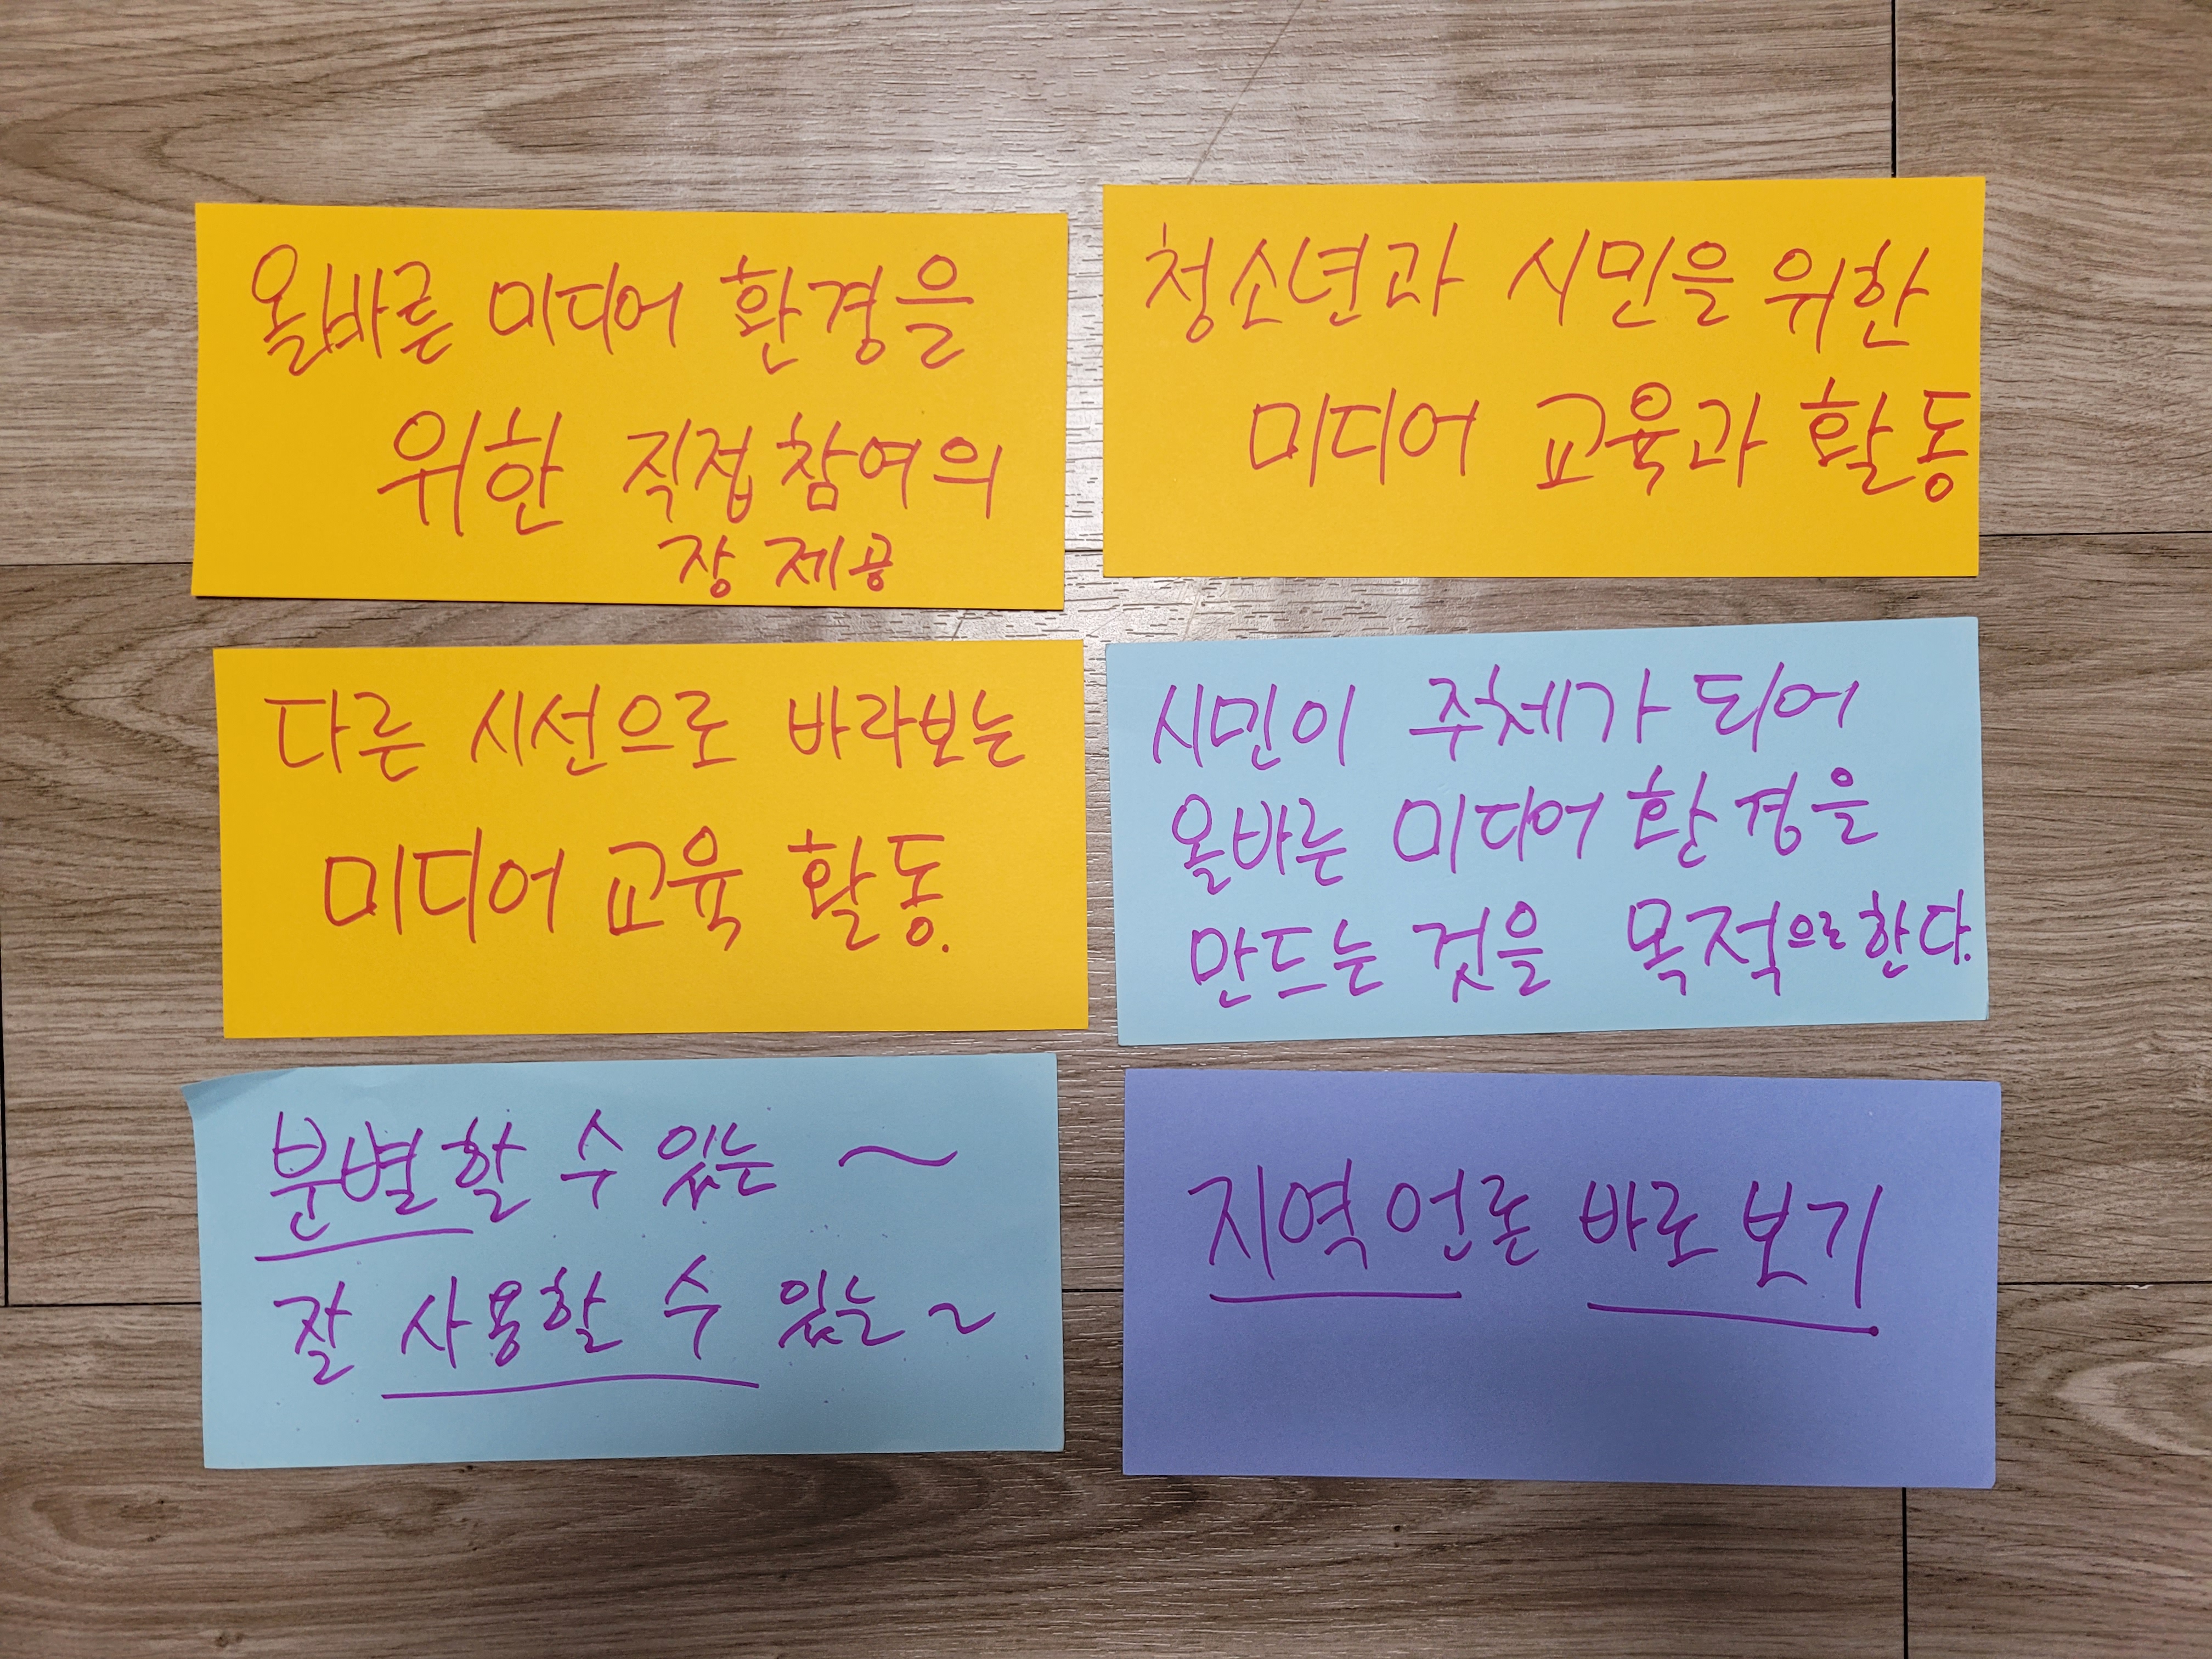 올바른 미디어 환경을
위한 직접 참여의
장 제공
청소년과 시민을 위한
미디어 교육과 활동
다른 시선으로 바라보는
미디어 교육 활동.
시민이 주체가 되어
올바른 미디어 환경을
만드는 것을 목적으로 한다.
분별할 수 있는 ~
잘 사용할 수 있는 ~
지역 언론 바로 보기